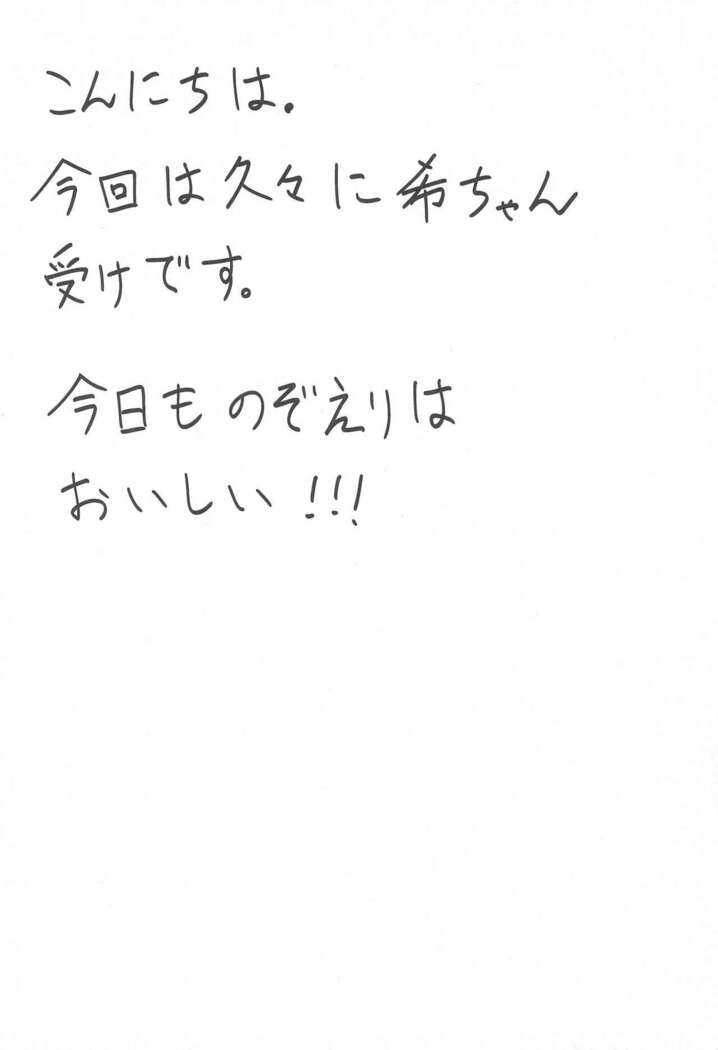 こんにちは.
今回は久々に希ちゃん
受けです。
今日ものぞえりは
おいしい!!!